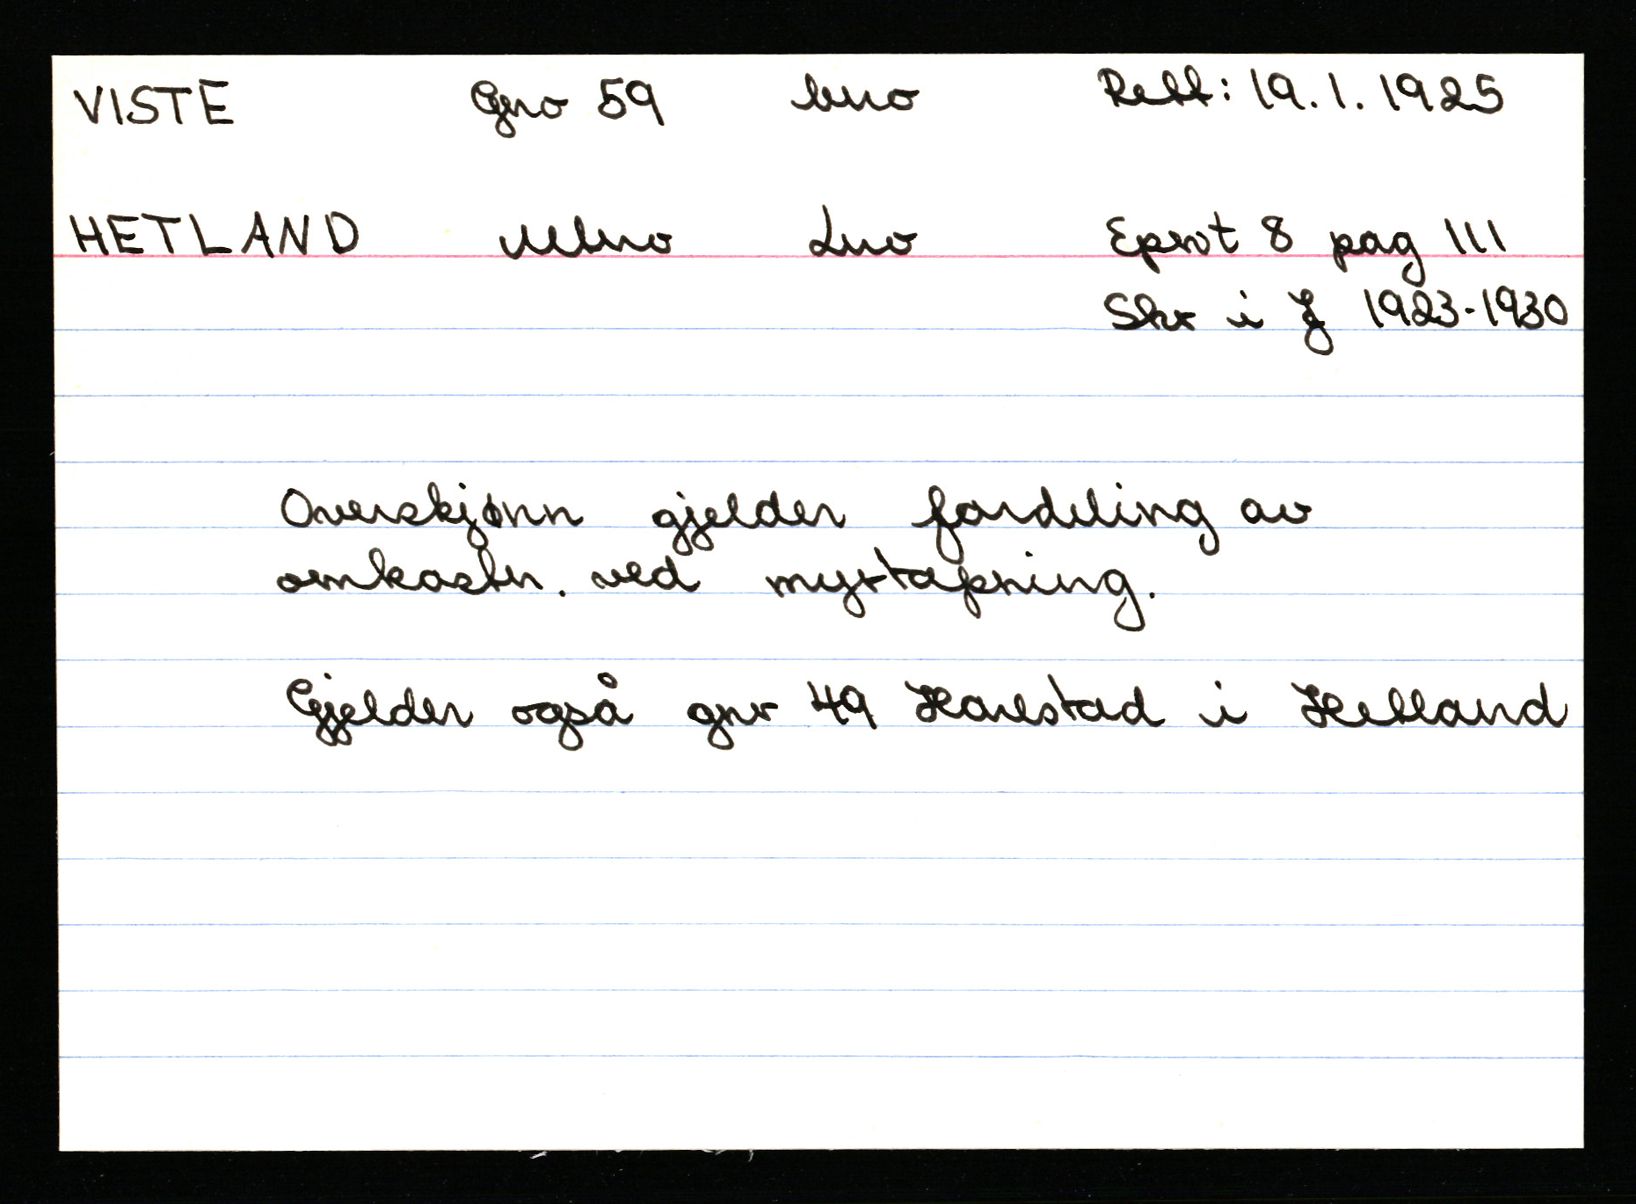 VISTE Gno 59 bno Rett: 19.1.1925
HETLAND Mbno Lno Eprot 8 pag 111
Skr i J 1923-1930
Overskjønn gjelder fordeling av
omkostn. ved myrtapning.
Gjelder også gnr 49 Harestad i Hetland